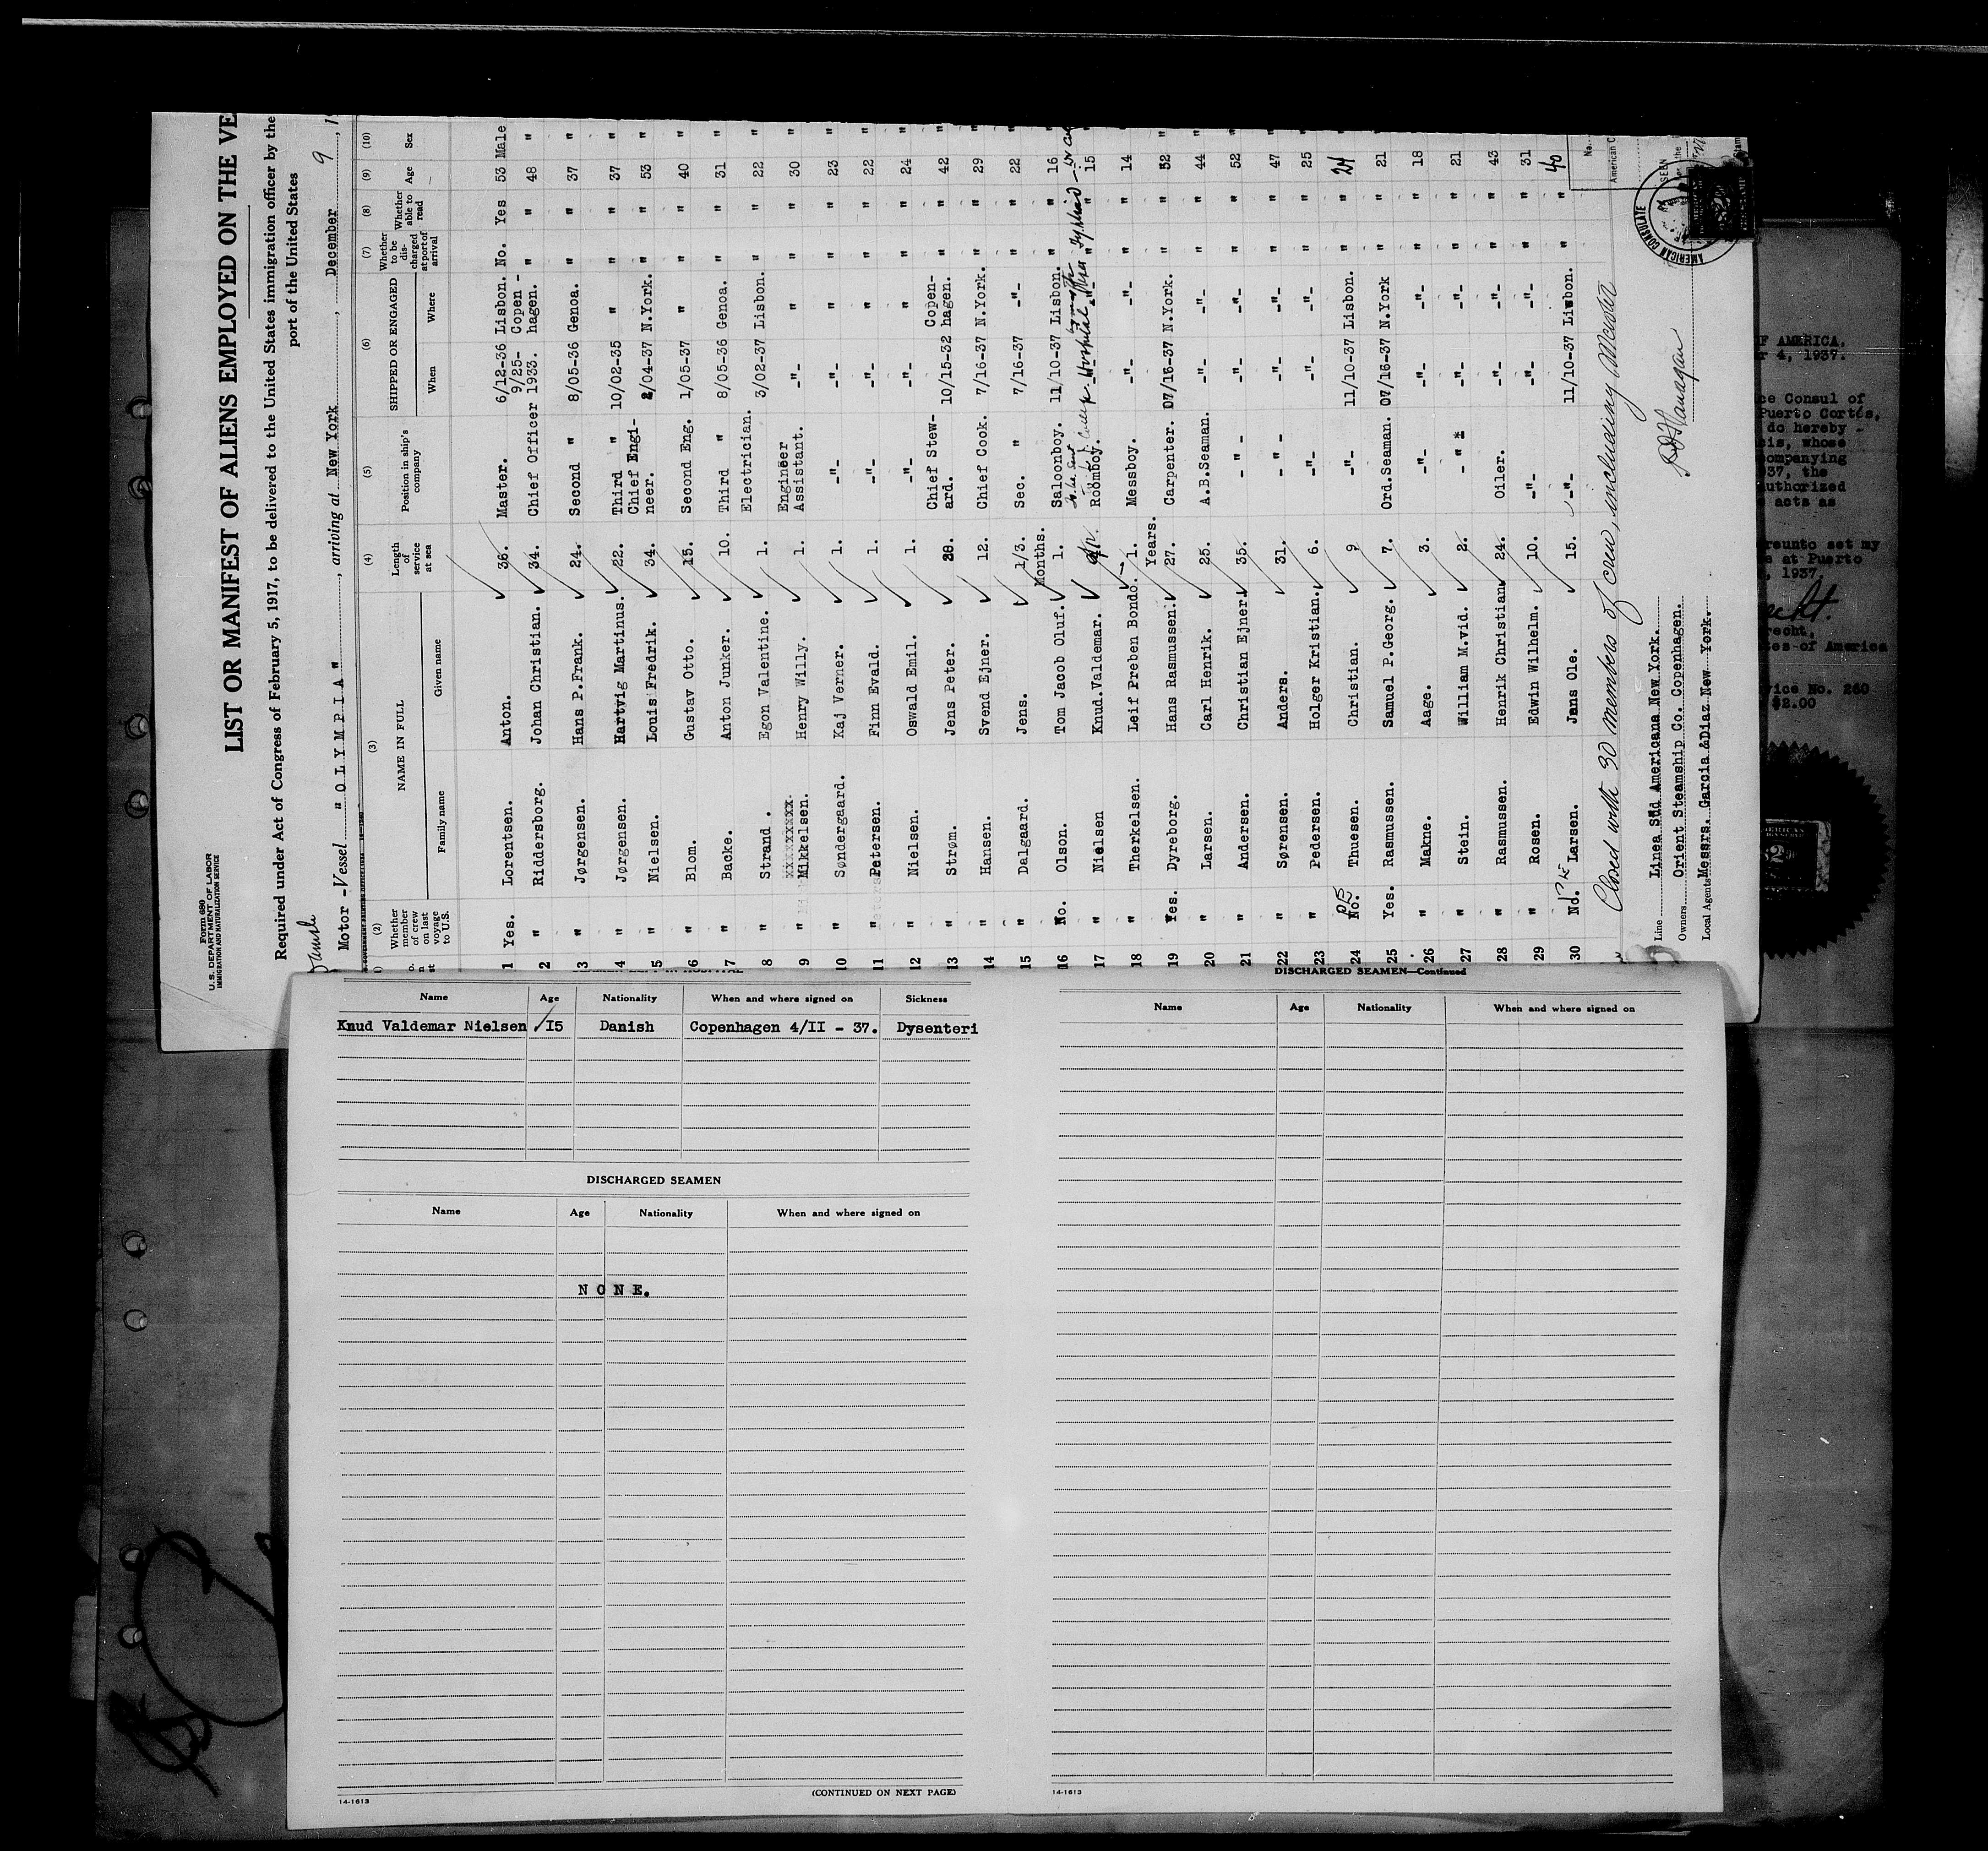 Form 680
U. S. DEPARTMENT OF LABOR
IMMIGRATION AND NATURALIZATION SERVICE
LIST OR MANIFEST OF ALIENS EMPLOYED ON THE VE
Required under Act of Congress of February 5, 1917, to be delivered to the United States immigration officer by the
port of the United States
Danish
Motor -Vessel " O L Y M P I A " , arriving at New York , December 9 , 19
(2) (3) (4) (5) (6) (7) (8) (9) (10)
Whether member of crew on last voyage to U.S. NAME IN FULL Family name Given name Length of service at sea Position in ship's company SHIPPED OR ENGAGED When Where Whether to be discharged at port of arrival Whether able to read Age Sex
1 Yes. Lorentsen. Anton. 36. Master. 6/12-36 Lisbon. No. Yes 53 Male
2 " Riddersborg. Johan Christian. 34. Chief Officer 9/25-1933. Copen-hagen. " " 48 "
3 " Jørgensen. Hans P.Frank. 24. Second " 8/05-36 Genoa. " " 37 "
4 " Jørgensen. Hartvig Martinus. 22. Third " 10/02-35 " " " 37 "
5 " Nielsen. Louis Fredrik. 34. Chief Engi-neer. 2/04-37 N.York. " " 53 "
6 " Blom. Gustav Otto. 15. Second Eng. 1/05-37 " " " 40 "
7 " Backe. Anton Junker. 10. Third " 8/05-36 Genoa. " " 31 "
8 " Strand . Egon Valentine. 1. Electrician. 3/02-37 Lisbon. " " 22 "
9 " xxxxxxxxx. Mikkelsen. Henry Willy. 1. Engineer Assistant. -"- " " " 30 "
10 " Søndergaard. Kaj Verner. 1. -"- -"- " " " 23 "
11 " Petersen. Finn Evald. 1. -"- -"- " " " 22 "
12 " Nielsen. Oswald Emil. 1. -"- -"- " " " 24 "
13 " Strøm. Jens Peter. 28. Chief Stew-ard. 10/15-32 Copen-hagen. " " 42 "
14 " Hansen. Svend Ejner. 12. Chief Cook. 7/16-37 N.York. " " 29 "
15 " Dalgaard. Jens. 1/3. Sec. " 7/16-37 -"- " " 22 "
Months.
16 No. Olson. Tom Jacob Oluf. 1. Salonboy. 11/10-37 Lisbon. " " 16 "
17 " Nielsen Knud.Valdemar. Roomboy. -"- -"- " " 15 "
18 " Therkelsen. Leif Preben Bondo. 1. Messboy. -"- -"- " " 14 "
Years.
19 Yes. Dyreborg. Hans Rasmussen. 27. Carpenter. 07/16-37 N.York. " " 32 "
20 " Larsen. Carl Henrik. 25. A.B.Seaman. -"- -"- " " 44 "
21 " Andersen. Christian Ejner. 35. - " - -"- -"- " " 52 "
22 " Sørensen. Anders. 31. - " - -"- -"- " " 47 "
23 " Pedersen. Holger Kristian. 6. -"- -"- -"- " " 25 "
24 No. Thuesen. Christian. 9 -"- 11/10-37 Lisbon. " " 24 "
25 Yes. Rasmussen. Samuel P.Georg. 7. Ord.Seaman. 07/16-37 N.York " " 21 "
26 " Makne. Aage. 3. -"- -"- -"- " " 18 "
27 " Stein. William M.vid. 2. - " - -"- -"- " " 21 "
28 " Rasmussen. Henrik Christian. 24. Oiler. -"- -"- " " 43 "
29 " Rosen. Edwin Wilhelm. 10. -"- -"- -"- " " 31 "
30 No. Larsen. Jens Ole. 15. -"- 11/10-37 Lisbon. " " 40
Closed with 30 members of crew, including Master
Line Linea Süd Americana New York.
Owners Orient Steamship Co. Copenhagen.
Local Agents Messrs. Garcia &Diaz New York.
No.
American C
SEEN
AMERICAN CONSULATE
F AMERICA,
r 4, 1937.
ce Consul of
Puerto Cortés,
do hereby -
sis, whose
companying
937, the
authorized
acts as
reunto set my
e at Puerto
, 1937.
recht,
tes of America
vice No. 260
$2.00
Name Age Nationality When and where signed on Sickness
Knud Valdemar Nielsen I5 Danish Copenhagen 4/II - 37. Dysenteri
DISCHARGED SEAMEN
Name Age Nationality When and where signed on
N O N E.
(CONTINUED ON NEXT PAGE)
14-1613
DISCHARGED SEAMEN—Continued
Name Age Nationality When and where signed on
14-1613